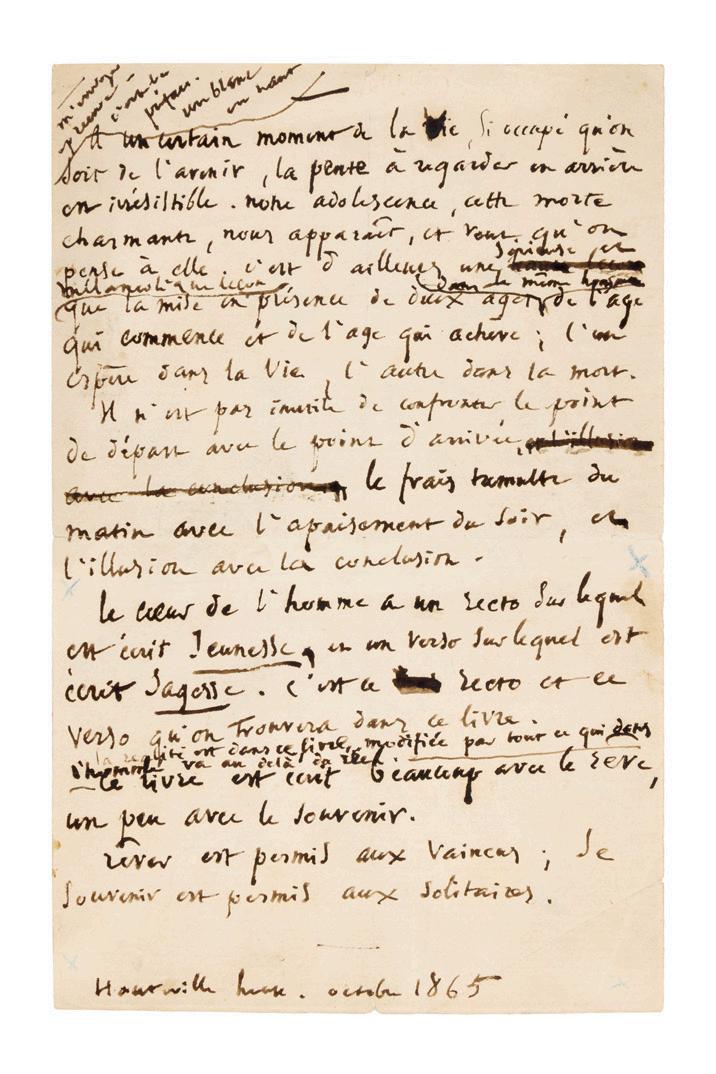 c'est la
préface.
un blanc
en haut
A un certain moment de la vie, si occupé qu'on
soit de l'avenir, la pente à regarder en arrière
est irrésistible. notre adolescence, cette morte
charmante, nous apparaît, et veut qu'on
pense à elle. c'est d'ailleurs une sérieuse et
mélancolique leçon
que la mise en présence de deux ages dans le même homme, de l'age
qui commence et de l'age qui achève ; l'un
espère dans la vie, l'autre dans la mort.
Il n'est pas inutile de confronter le point
de départ avec le point d'arrivée, et l'illusion
avec la conclusion, le frais tumulte du
matin avec l'apaisement du soir, et
l'illusion avec la conclusion.
le cœur de l'homme a un recto sur lequel
est écrit Jeunesse, et un verso sur lequel est
écrit Sagesse. C'est ce recto et ce
verso qu'on trouvera dans ce livre.
la réalité est dans ce livre, modifiée par tout ce qui dans
l'homme va au delà du réel
Ce livre est écrit beaucoup avec le rêve,
un peu avec le souvenir.
rêver est permis aux vaincus ; se
souvenir est permis aux solitaires.
Hauteville house. octobre 1865